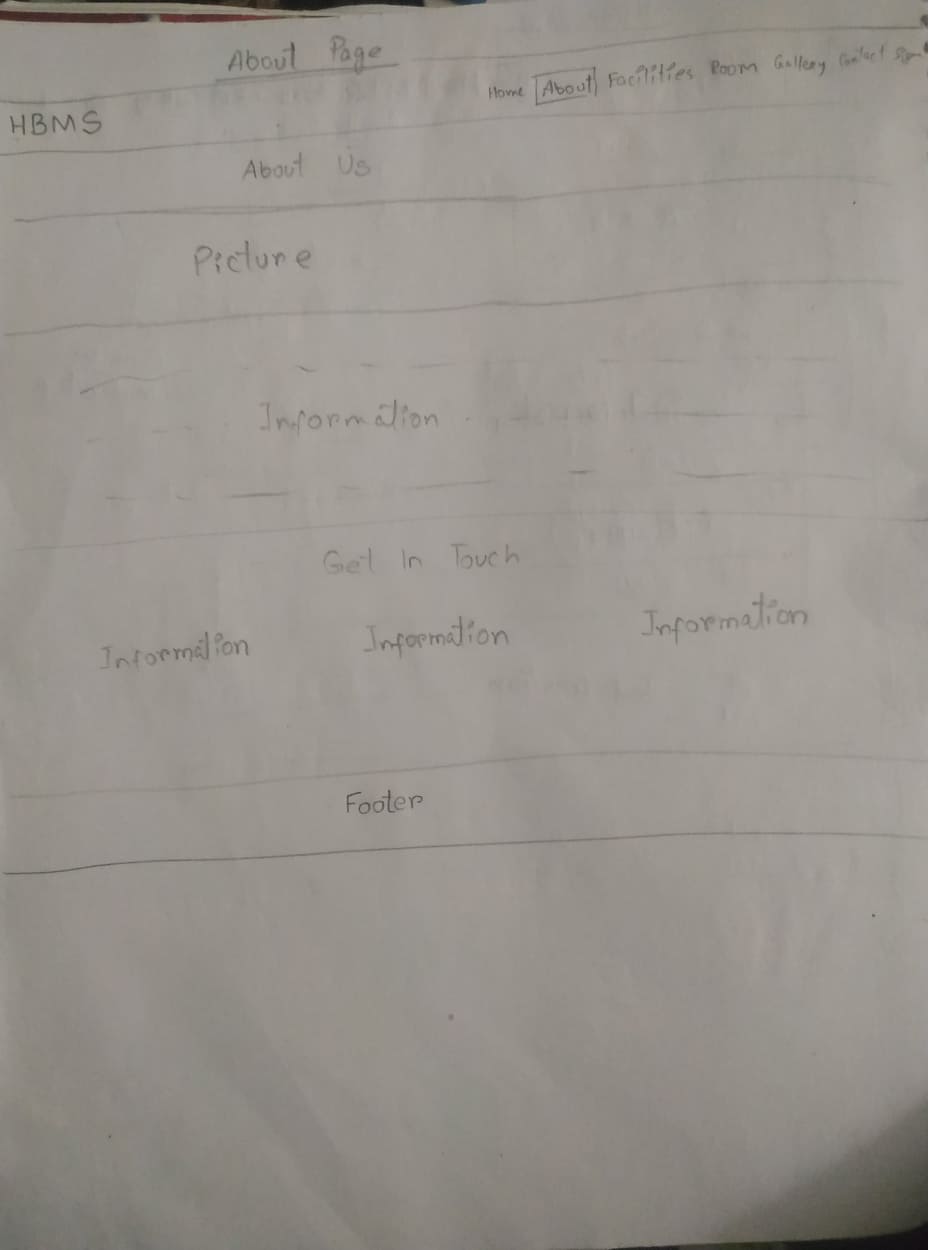 About Page
HBMS Home About Facilities Room Gallery Contact
About Us
Picture
Information
Get In Touch
Information Information Information
Footer